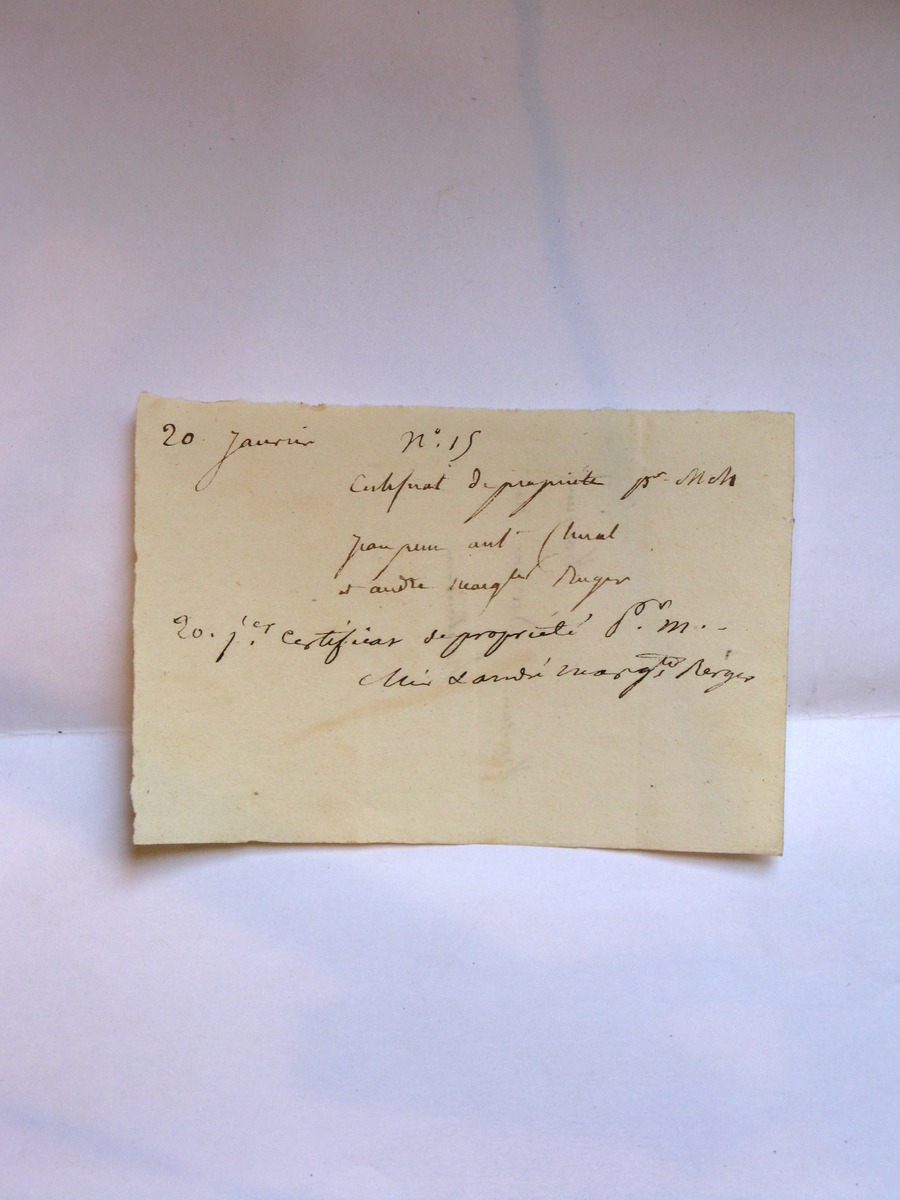 20. Janvier N°. 15
Certificat de propriété pr. MM
Jean pierre ant.
et andré marg.te Berger
20. j.er Certificat de propriété P.r m.
& andré marg.te Berger